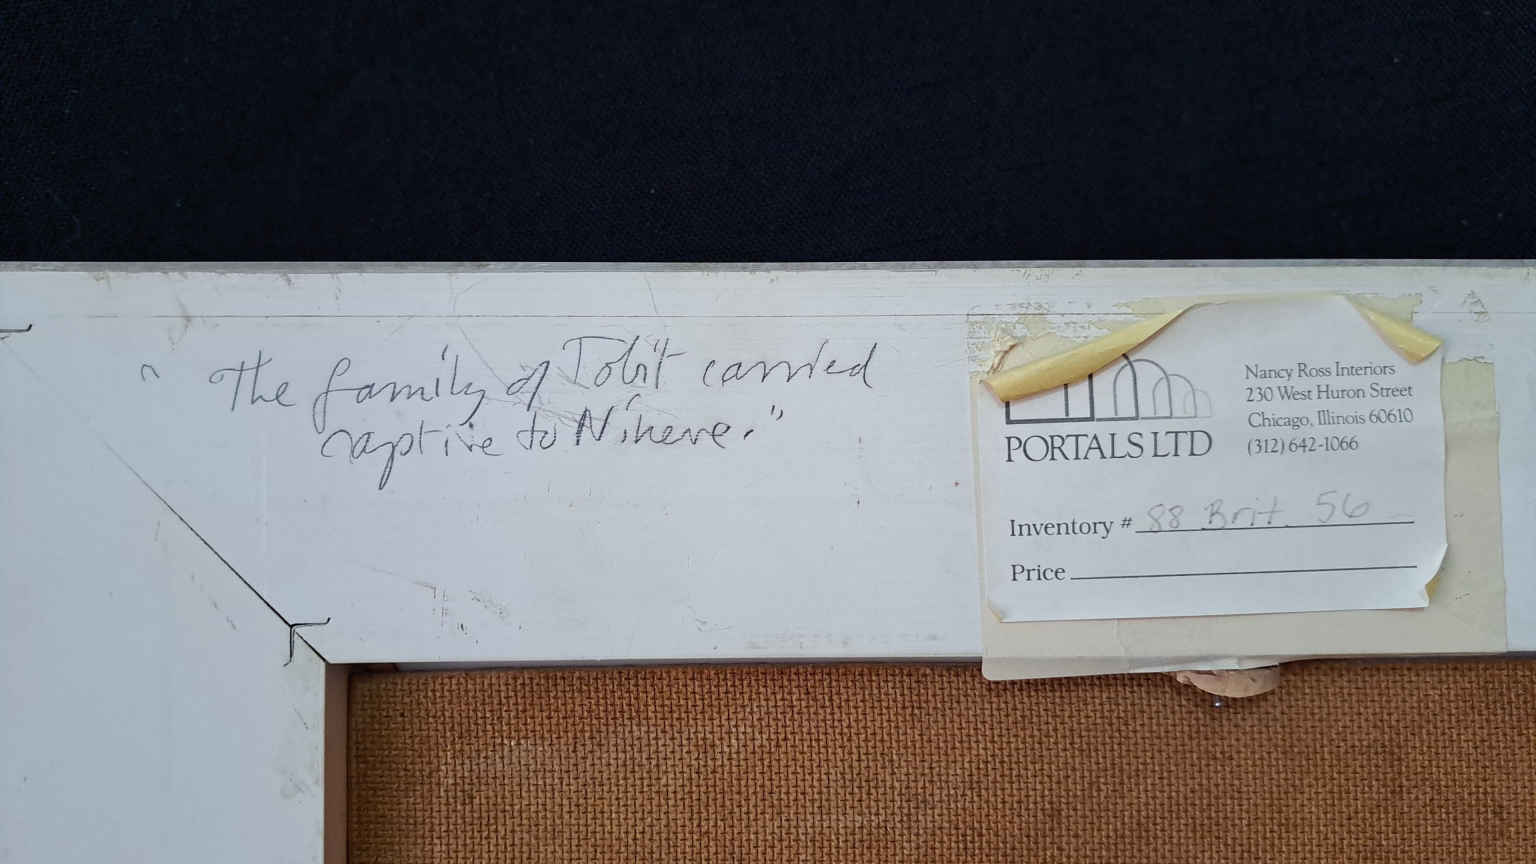 " The family of Tobit carried
captive to Nineve."
PORTALS LTD
Nancy Ross Interiors
230 West Huron Street
Chicago, Illinois 60610
(312) 642-1066
Inventory # 88 Brit. 56
Price